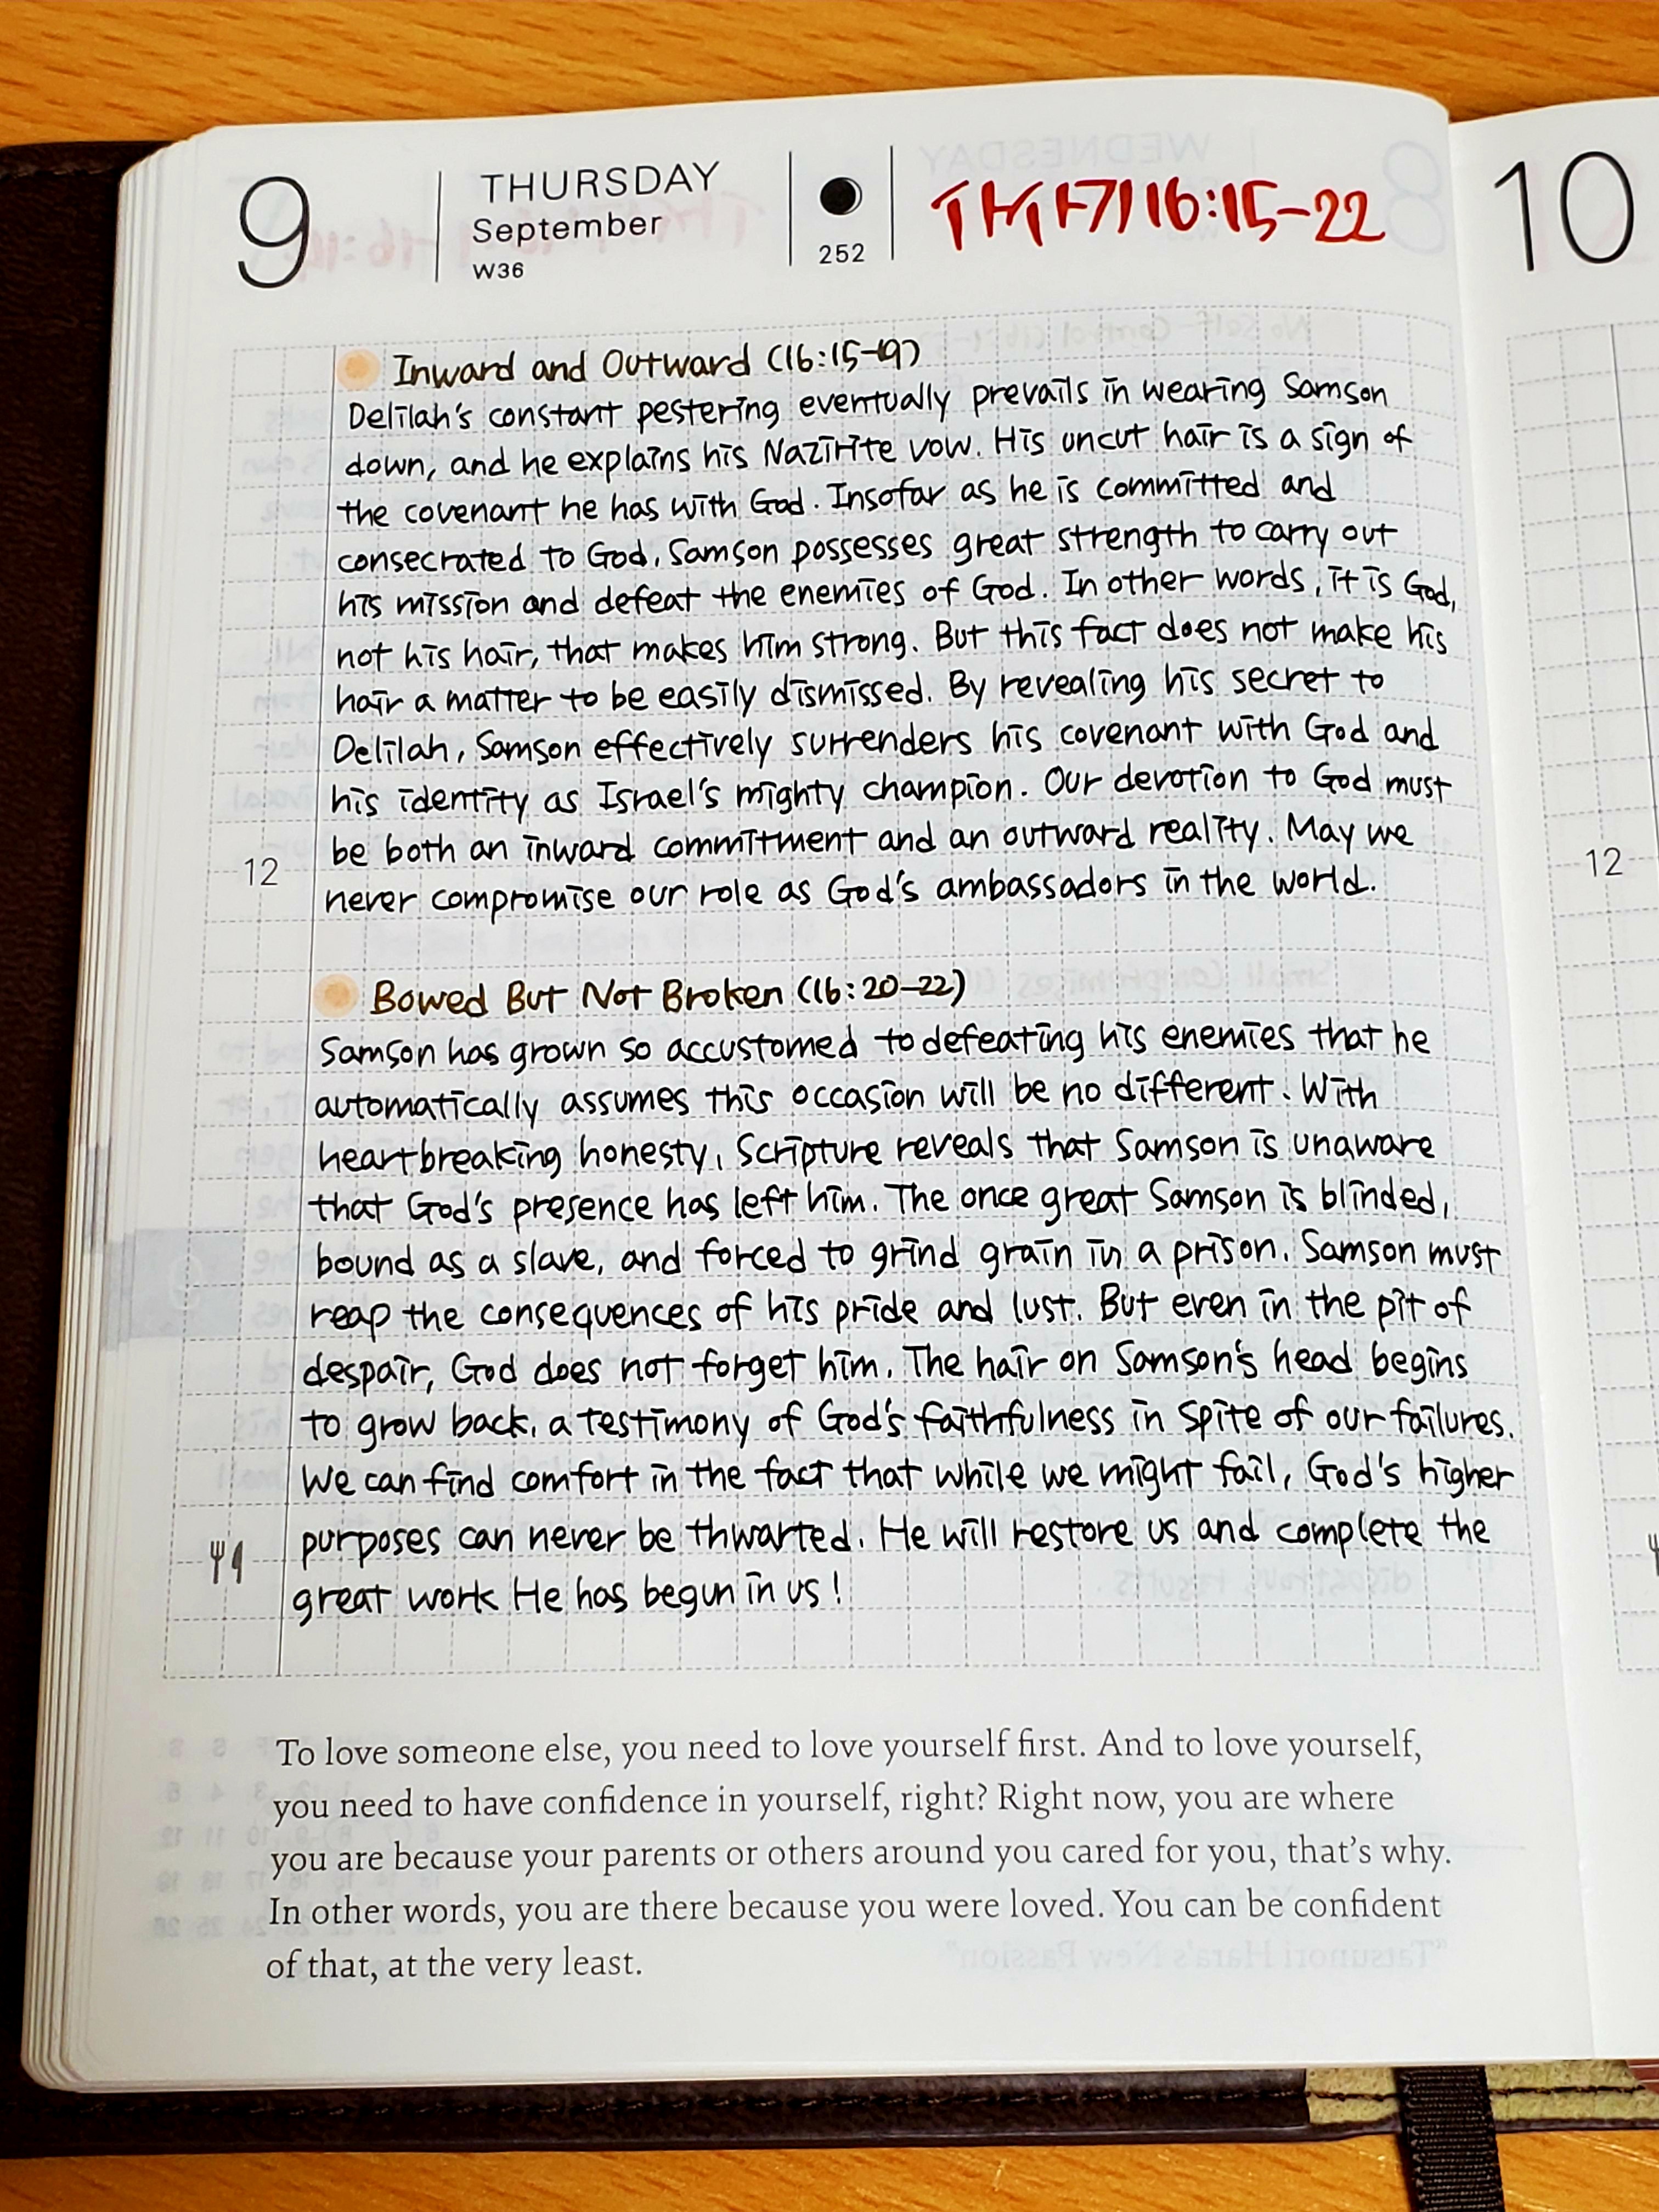 9
THURSDAY
September
W36
252
사사기 16:15-22
10
Inward and Outward (16:15-19)
Delilah's constant pestering eventually prevails in wearing Samson
down, and he explains his Nazirite vow. His uncut hair is a sign of
the covenant he has with God. Insofar as he is committed and
consecrated to God, Samson possesses great strength to carry out
his mission and defeat the enemies of God. In other words, it is God,
not his hair, that makes him strong. But this fact does not make his
hair a matter to be easily dismissed. By revealing his secret to
Delilah, Samson effectively surrenders his covenant with God and
his identity as Israel's mighty champion. Our devotion to God must
12 be both an inward commitment and an outward reality. May we
never compromise our role as God's ambassadors in the world.
12
Bowed But Not Broken (16:20-22)
Samson has grown so accustomed to defeating his enemies that he
automatically assumes this occasion will be no different. With
heartbreaking honesty, Scripture reveals that Samson is unaware
that God's presence has left him. The once great Samson is blinded,
bound as a slave, and forced to grind grain in a prison. Samson must
reap the consequences of his pride and lust. But even in the pit of
despair, God does not forget him. The hair on Samson's head begins
to grow back, a testimony of God's faithfulness in spite of our failures.
We can find comfort in the fact that while we might fail, God's higher
purposes can never be thwarted. He will restore us and complete the
great work He has begun in us!
To love someone else, you need to love yourself first. And to love yourself,
you need to have confidence in yourself, right? Right now, you are where
you are because your parents or others around you cared for you, that's why.
In other words, you are there because you were loved. You can be confident
of that, at the very least.